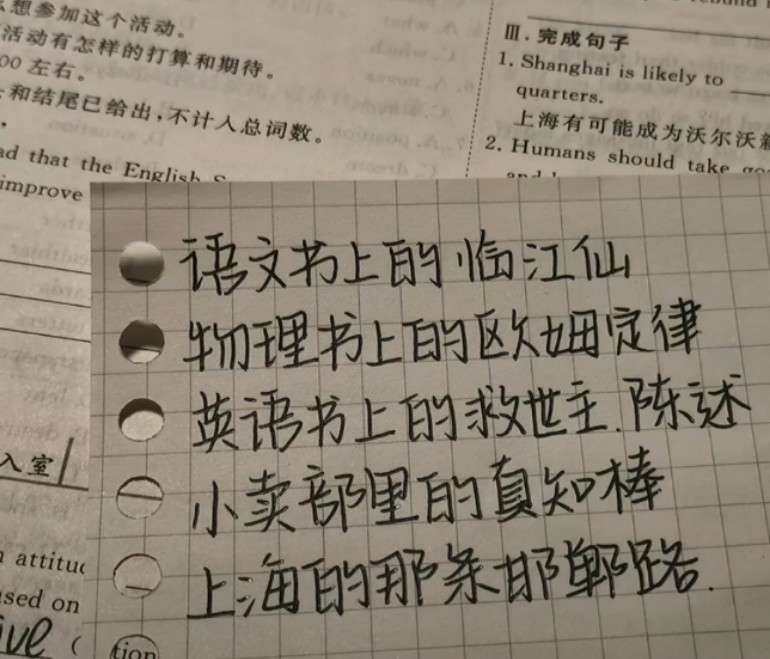 想参加这个活动。
活动有怎样的打算和期待。
00左右。
和结尾已给出,不计入总词数。
ad that the English
improve
入室
attitu
sed on
ive (
tion
Ⅲ.完成句子
1. Shanghai is likely to
quarters.
上海有可能成为沃尔沃
2. Humans should take
语文书上的临江仙
物理书上的欧姆定律
英语书上的救世主.陈述
小卖部里的真知棒
上海的那条邯郸路.